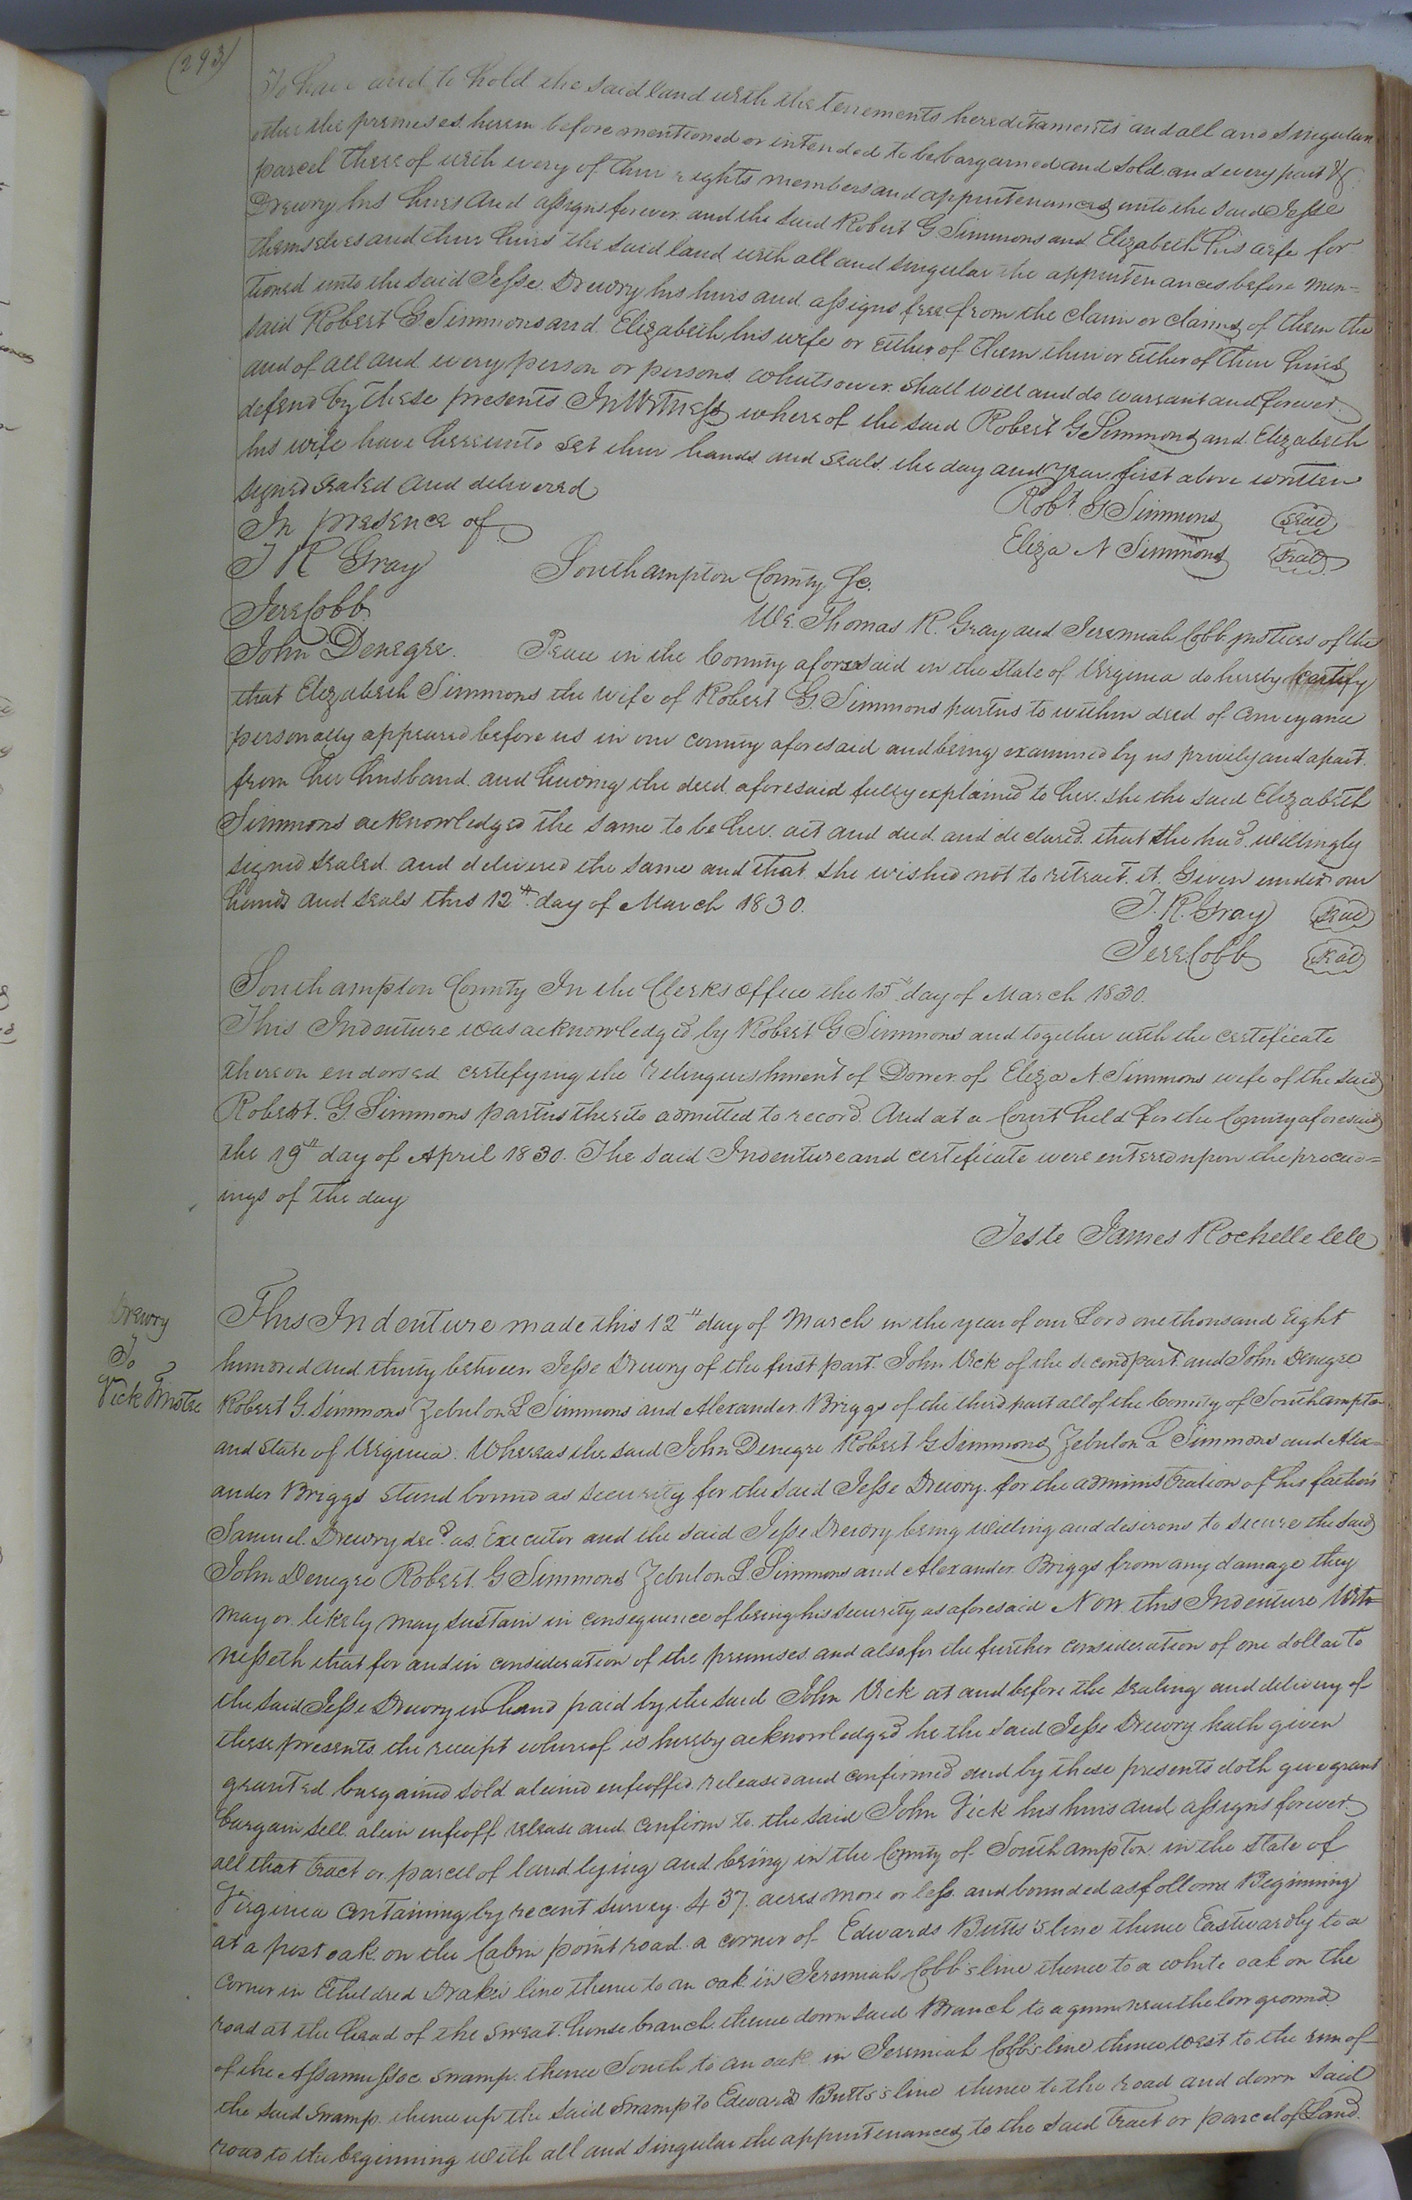 (293)
To have and to hold the said land with the tenements hereditaments and all and singular
other the premises herein before mentioned or intended to be bargained and sold and every part &
parcel thereof with every of their rights members and appurtenances unto the said Jesse
Drewry his heirs and assigns forever and the said Robert G. Simmons and Elizabeth his wife for
themselves and their heirs the said land with all and singular the appurtenances before men=
tioned unto the said Jesse Drewry his heirs and assigns free from the claim or claims of them the
said Robert G Simmons and Elizabeth his wife or either of them their or either of their heirs
and of all and every person or persons whatsoever shall will and do warrant and forever
defend by these presents In Witness whereof the said Robert G Simmons and Elizabeth
his wife have hereunto set their hands and seals the day and year first above written
signed sealed and delivered
Robt G Simmons Seal
In presence of
Eliza N Simmons Seal
T R Gray
Southampton County Sc.
Jere Cobb
We Thomas R. Gray and Jeremiah Cobb justices of the
John Denegre.
Peace in the County aforesaid in the State of Virginia do hereby certify
that Elizabeth Simmons the wife of Robert G. Simmons parties to within deed of conveyance
personally appeared before us in our county aforesaid and being examined by us privily and apart
from her husband and having the deed aforesaid fully explained to her she the said Elizabeth
Simmons acknowledged the same to be her act and deed and declared that she had willingly
signed sealed and delivered the same and that she wished not to retract it Given under our
hands and seals this 12th day of March 1830.
T. R. Gray Seal
Jere Cobb Seal
Southampton County In the Clerks office the 15th day of March 1830.
This Indenture was acknowledged by Robert G Simmons and together with the certificate
thereon endorsed certifying the relinquishment of Dower of Eliza N Simmons wife of the said
Robert G. Simmons parties thereto admitted to record And at a Court held for the County aforesaid
the 19th day of April 1830. The said Indenture and certificate were entered upon the proceed=
ings of the day
Teste James Rochelle clk
Drewry
To
Vick Trustee
This Indenture made this 12th day of March in the year of our Lord one thousand Eight
hundred and thirty between Jesse Drewry of the first part John Vick of the second part and John Denegre
Robert G. Simmons Zebulon L Simmons and Alexander Briggs of the third part all of the County of Southampton
and State of Virginia. Whereas the said John Denegre Robert G Simmons Zebulon L Simmons and Alex=
ander Briggs stand bound as security for the said Jesse Drewry for the administration of his father
Samuel Drewry decd. as Executor and the said Jesse Drewry being willing and desirous to secure the said
John Denegre Robert G Simmons Zebulon L. Simmons and Alexander Briggs from any damage they
may or likely may sustain in consequence of being his security as aforesaid Now this Indenture Wit=
nesseth that for and in consideration of the premises and also for the further consideration of one dollar to
the said Jesse Drewry in hand paid by the said John Vick at and before the sealing and delivery of
these presents the receipt whereof is hereby acknowledged he the said Jesse Drewry hath given
granted bargained sold aliened enfeoffed released and confirmed and by these presents doth give grant
bargain sell alien enfeoff release and confirm to the said John Vick his heirs and assigns forever
all that tract or parcel of land lying and being in the County of Southampton in the State of
Virginia containing by recent survey 437 acres more or less and bounded as follows Beginning
at a post oak on the Cabin point road a corner of Edwards Butts's line thence Eastwardly to a
corner in Etheldred Drake's line thence to an oak in Jeremiah Cobb's line thence to a white oak on the
road at the head of the sweat house branch thence down said Branch to a gum near the low ground
of the Assamussoc Swamp thence South to an oak in Jeremiah Cobb's line thence west to the run of
the said swamp thence up the said Swamp to Edward Butts's line thence to the road and down said
road to the beginning with all and singular the appurtenances to the said tract or parcel of Land